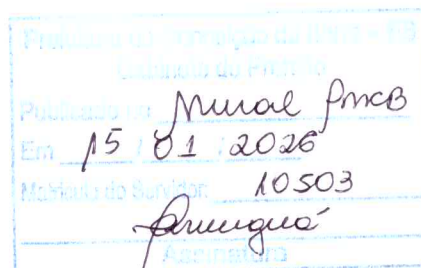 Prefeitura de Conceição da Barra - ES
Gabinete do Prefeito
Publicado no Mural PMCB
Em 15 / 01 / 2026
Matrícula do Servidor: 10503
Assinatura